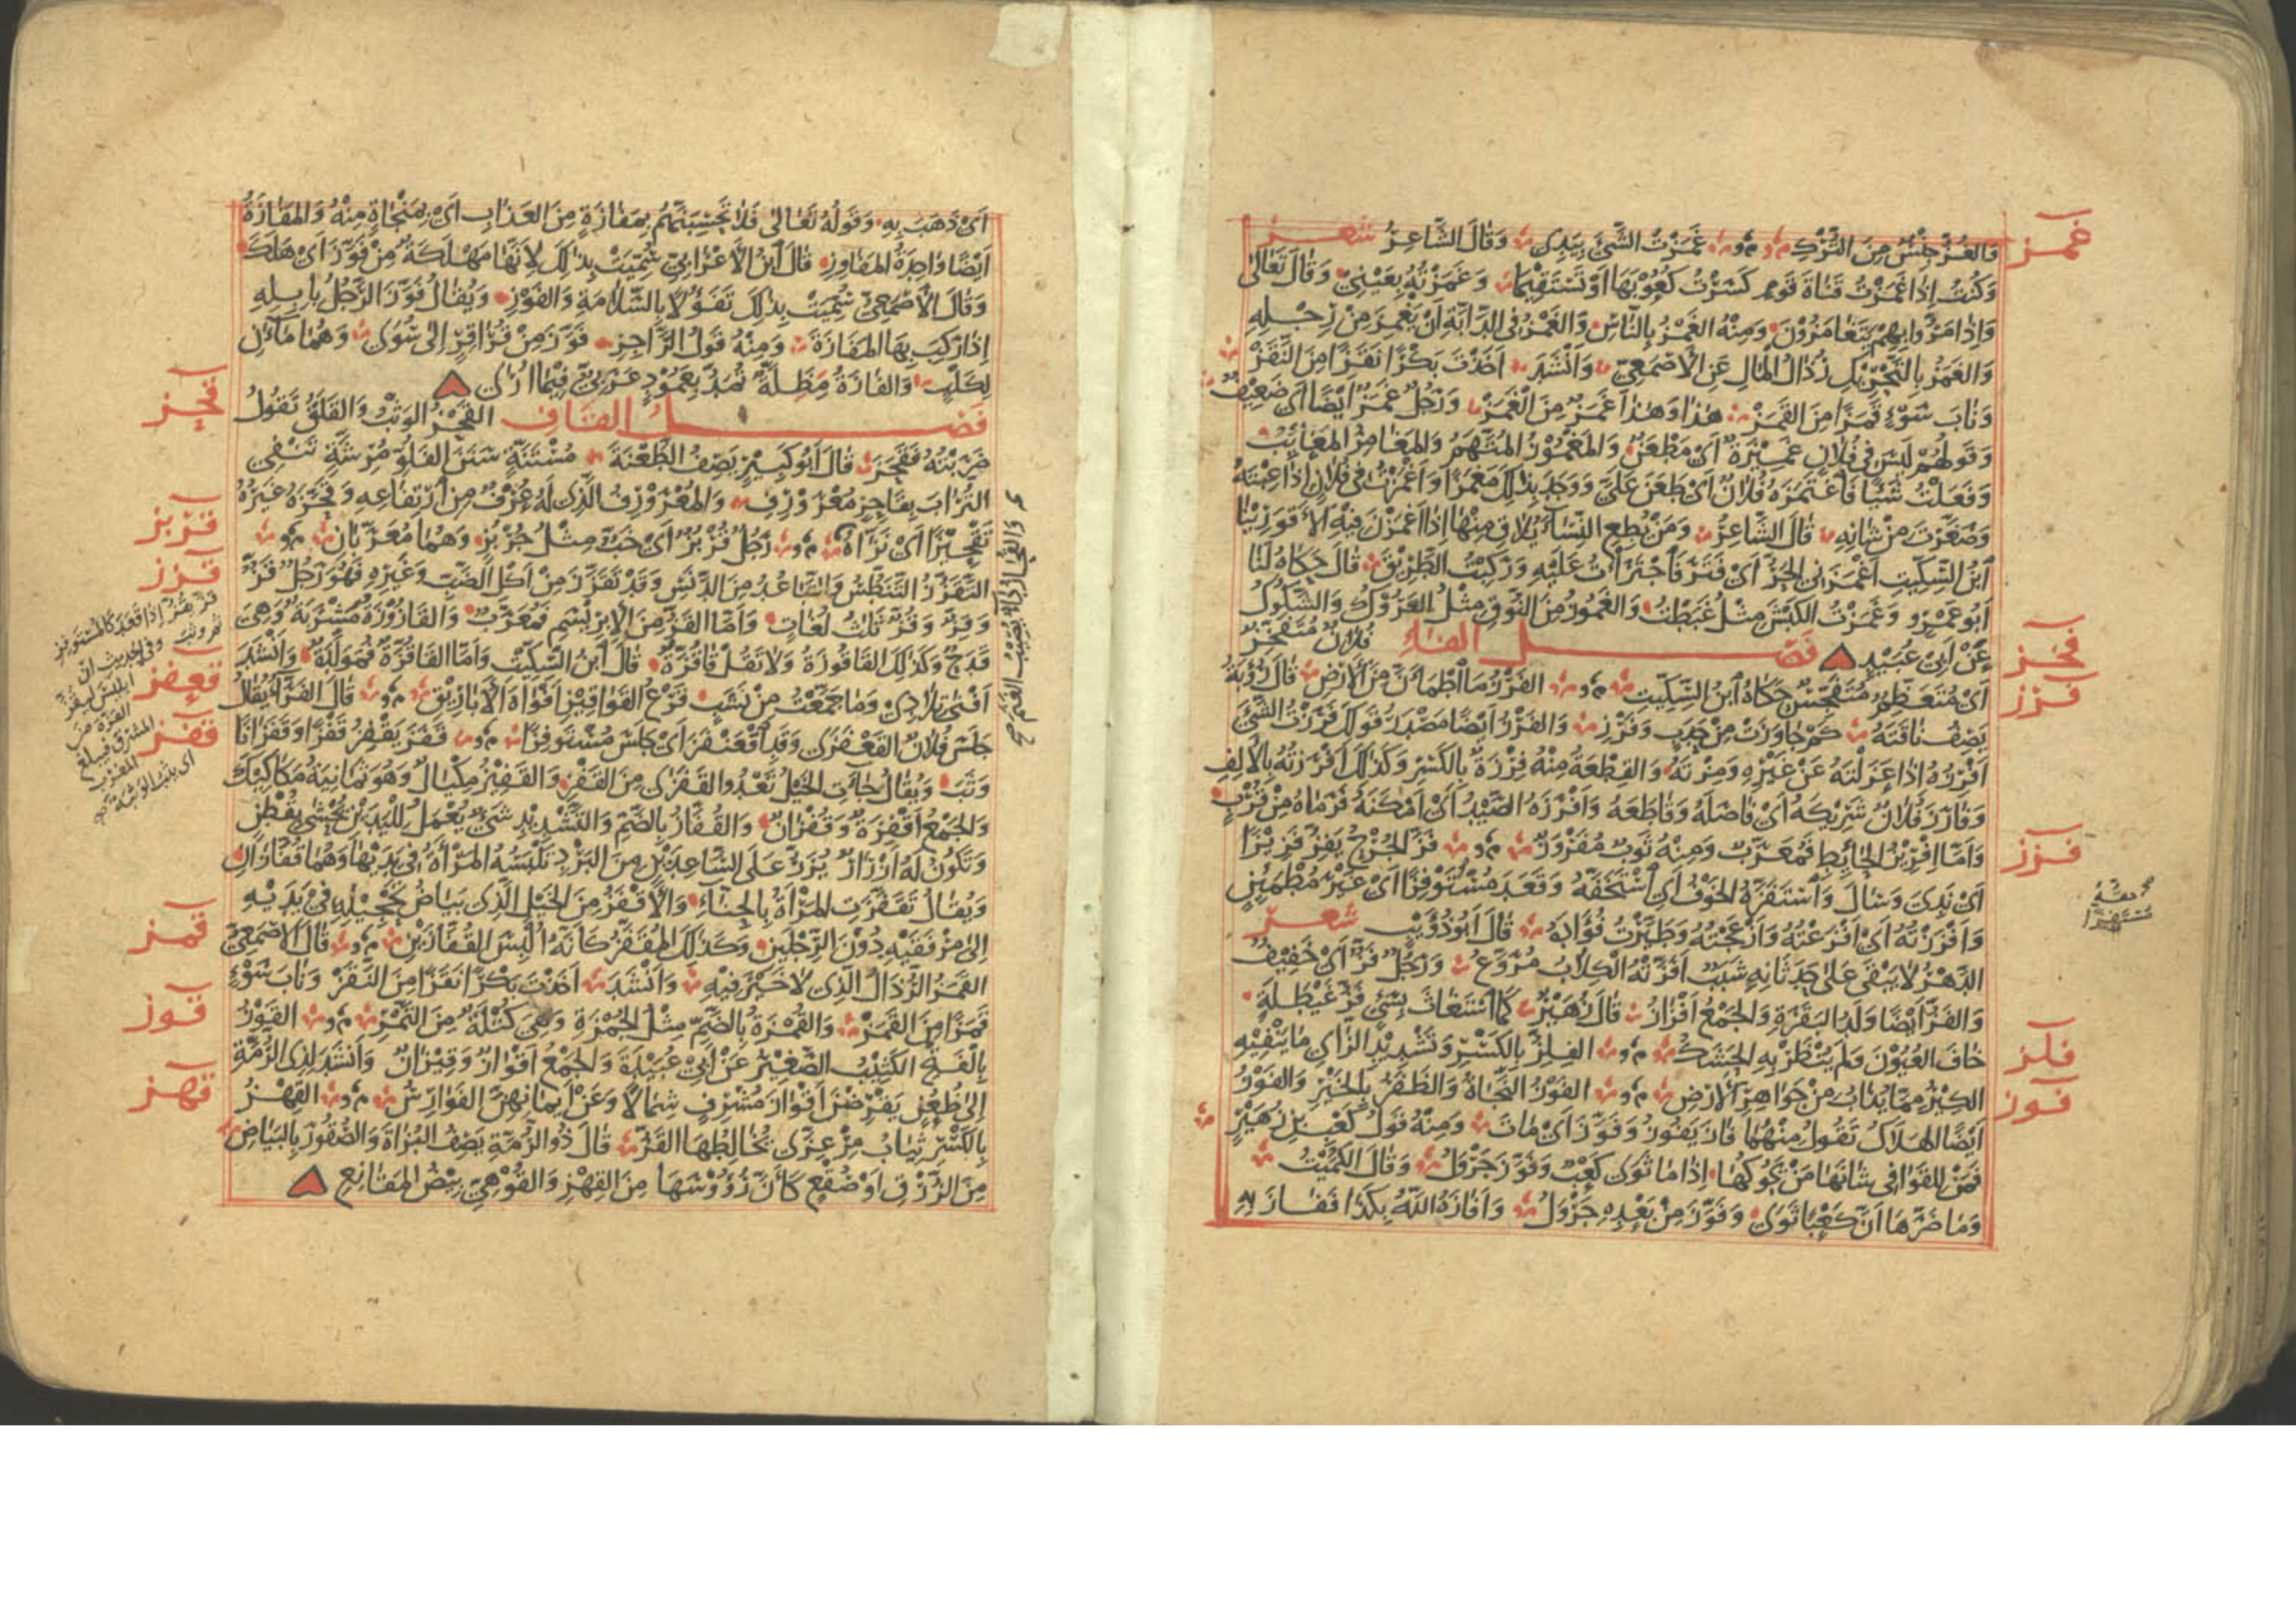 غمز
وَالغُزُّ جِنْسٌ مِنَ التُّرْكِ غَمَزْتُ الشَّيْءَ بِيَدِى وَقَالَ الشَّاعِرُ شعر
وَكُنْتُ إِذَا غَمَزْتُ قَنَاةَ قَوْمٍ كَسَرْتُ كُعُوْبَهَا أَوْ تَسْتَقِيْمَا وَغَمَزْتُهُ بِعَيْنِيْ وَقَالَ تَعَالَى
وَإِذَا مَرُّوا بِهِمْ يَتَغَامَزُوْنَ وَمِنْهُ الغَمْزُ بِالنَّاسِ وَالغَمْزُ فِى الدَّابَّةِ أَنْ يَغْمِزَ مِنْ رِجْلِهِ
وَالغَمَزُ بِالتَّحْرِيْكِ رُذَالُ المَالِ عَنِ الأَصْمَعِيِّ وَأَنْشَدَ أَخَذْتُ بَكْرًا نَقَزًا مِنَ النَّقَزْ
وَنَابَ سَوْءٍ قَمَزًا مِنَ القَمَزْ هٰذَا وَهٰذَا غَمَزٌ مِنَ الغَمَزْ وَرَجُلٌ غَمَزٌ أَيْضًا أَى ضَعِيْفٌ
وَقَوْلُهُمْ لَيْسَ فِى فُلَانٍ غَمِيْزَةٌ أَىْ مَطْعَنٌ وَالمَغْمُوْزُ المُتَّهَمُ وَالمَغَامِزُ المَعَايِبُ
وَفَعَلْتُ شَيْئًا فَاغْتَمَزَهُ فُلَانٌ أَىْ طَعَنَ عَلَيَّ وَوَجَدَ بِذٰلِكَ مَغْمَزًا وَأَغْمَزْتُ فِى فُلَانٍ إِذَا عِبْتَهُ
وَصَغَّرْتَ مِنْ شَانِهِ قَالَ الشَّاعِرُ وَمَنْ يُطِعِ النِّسَاءَ يُلَاقِ مِنْهَا إِذَا أَغْمَزْنَ فِيْهِ الأَقْوَرِيْنَا
ابْنُ السِّكِّيْتِ أَغْمَزَنِى الحَرُّ أَىْ فَتَرَ فَاجْتَرَأْتُ عَلَيْهِ وَرَكِبْتُ الطَّرِيْقَ قَالَ حَكَاهُ لَنَا
أَبُو عَمْرٍو وَغَمَزْتُ الكَبْشَ مِثْلُ غَبَطْتُ وَالغَمُوْزُ مِنَ النُّوْقِ مِثْلُ العَرُوْكِ وَالشَّكُوْكِ
عَنْ أَبِى عُبَيْدٍ فَصْل الفَاءِ فُلَانٌ مُتَفَخِّزٌ
فخز
أَىْ مُتَعَظِّمٌ مُتَفَحِّشٌ حَكَاهُ ابْنُ السِّكِّيْتِ الفَرْزُ مَا اطْمَأَنَّ مِنَ الأَرْضِ قَالَ رُؤْبَةُ
فرز
يَصِفُ نَاقَتَهُ كَمْ جَاوَزَتْ مِنْ حَدَبٍ وَفَرْزِ وَالفَرْزُ أَيْضًا مَصْدَرُ قَوْلِكَ فَرَزْتُ الشَّيْءَ
أَفْرِزُهُ إِذَا عَزَلْتَهُ عَنْ غَيْرِهِ وَمِزْتَهُ وَالقِطْعَةُ مِنْهُ فِرْزَةٌ بِالكَسْرِ وَكَذٰلِكَ أَفْرَزْتُهُ بِالأَلِفِ
وَفَارَزَ فُلَانٌ شَرِيْكَهُ أَىْ فَاصَلَهُ وَقَاطَعَهُ وَأَفْرَزَهُ الصَّيْدُ أَىْ أَمْكَنَهُ فَرَمَاهُ مِنْ قُرْبٍ
وَأَمَّا إِفْرِيْزُ الحَائِطِ فَمُعَرَّبٌ وَمِنْهُ ثَوْبٌ مُفَرْوَزٌ فَزَّ الجُرْحُ يَفِزُّ فَزِيْزًا
فزز
أَىْ نَدِىَ وَسَالَ وَاسْتَفَزَّهُ الخَوْفُ أَىِ اسْتَخَفَّهُ وَقَعَدَ مُسْتَوْفِزًا أَىْ غَيْرَ مُطْمَئِنٍّ
وَأَفْزَزْتُهُ أَىْ أَفْزَعْتُهُ وَأَزْعَجْتُهُ وَطَيَّرْتُ فُؤَادَهُ قَالَ أَبُو ذُؤَيْبٍ شعر
الدَّهْرُ لَا يَبْقَى عَلَى حَدَثَانِهِ شَبَبٌ أَفَزَّتْهُ الكِلَابُ مُرَوَّعُ وَرَجُلٌ فَزٌّ أَىْ خَفِيْفٌ
وَالفَزُّ أَيْضًا وَلَدُ البَقَرَةِ وَالجَمْعُ أَفْزَازٌ قَالَ زُهَيْرٌ كَمَا اسْتَغَاثَ بِسَىْءٍ فَزُّ غَيْطَلَةٍ
خَافَ العُيُوْنَ فَلَمْ يُنْظَرْ بِهِ الحَشَكُ الفِلِزُّ بِالكَسْرِ وَتَشْدِيْدِ الزَّاىِ مَا يَنْفِيْهِ
فلز
الكِيْرُ مِمَّا يُذَابُ مِنْ جَوَاهِرِ الأَرْضِ الفَوْزُ النَّجَاةُ وَالظَّفَرُ بِالخَيْرِ وَالفَوْزُ
فوز
أَيْضًا الهَلَاكُ تَقُوْلُ مِنْهُمَا فَازَ يَفُوْزُ وَفَوَّزَ أَىْ مَاتَ وَمِنْهُ قَوْلُ كَعْبِ بْنِ زُهَيْرٍ
فَمَنْ لِلْقَوَافِى شَانَهَا مَنْ يَحُوْكُهَا إِذَا مَا ثَوَى كَعْبٌ وَفَوَّزَ جَرْوَلُ وَقَالَ الكُمَيْتُ
وَمَا ضَرَّهَا أَنَّ كَعْبًا ثَوَى وَفَوَّزَ مِنْ بَعْدِهِ جَرْوَلُ وَأَفَازَهُ اللهُ بِكَذَا فَفَازَ بِهِ
أَىْ ذَهَبَ بِهِ وَقَوْلُهُ تَعَالَى فَلَا تَحْسَبَنَّهُمْ بِمَفَازَةٍ مِنَ العَذَابِ أَىْ بِمَنْجَاةٍ مِنْهُ وَالمَفَازَةُ
أَيْضًا وَاحِدَةُ المَفَاوِزِ قَالَ ابْنُ الأَعْرَابِيِّ سُمِّيَتْ بِذٰلِكَ لِأَنَّهَا مَهْلَكَةٌ مِنْ فَوَّزَ أَىْ هَلَكَ
وَقَالَ الأَصْمَعِيُّ سُمِّيَتْ بِذٰلِكَ تَفَؤُّلًا بِالسَّلَامَةِ وَالفَوْزِ وَيُقَالُ فَوَّزَ الرَّجُلُ بِإِبِلِهِ
إِذَا رَكِبَ بِهَا المَفَازَةَ وَمِنْهُ قَوْلُ الرَّاجِزِ فَوَّزَ مِنْ قُرَاقِرٍ إِلَى سُوَى وَهُمَا مَاءَانِ
لِكَلْبٍ وَالفَازَةُ مِظَلَّةٌ تُمَدُّ بِعَمُوْدٍ عَرَبِيٌّ فِيْمَا أُرَى
فَصْل القَافِ القَحْزُ الوَثْبُ وَالقَلَقُ تَقُوْلُ
قحز
ضَرَبْتُهُ فَقَحَزَ قَالَ أَبُو كَبِيْرٍ يَصِفُ الطَّعْنَةَ مُسْتَنَّةٍ سَنَنَ الفَلُوِّ مُرِشَّةٍ تَنْفِى
التُّرَابَ بِقَاحِزٍ مُعْرَوْرِفِ وَالمُعْرَوْرِفُ الَّذِى لَهُ عُرْفٌ مِنِ ارْتِفَاعِهِ وَقَحَّزَهُ غَيْرُهُ
تَقْحِيْزًا أَىْ نَزَّاهُ رَجُلٌ قُرْبُزٌ أَىْ خَبٌّ مِثْلُ جُرْبُزٍ وَهُمَا مُعَرَّبَانِ
قربز
التَّقَزُّزُ التَّنَطُّسُ وَالتَّبَاعُدُ مِنَ الدَّنَسِ وَقَدْ تَقَزَّزَ مِنْ أَكْلِ الضَّبِّ وَغَيْرِهِ فَهُوَ رَجُلٌ قَزٌّ
قزز
وَقِزٌّ وَقُزٌّ ثَلَاثُ لُغَاتٍ وَأَمَّا القَزُّ مِنَ الإِبْرِيْسَمِ فَمُعَرَّبٌ وَالقَازُوْزَةُ مَشْرَبَةٌ وَهِىَ
قَدَحٌ وَكَذٰلِكَ القَاقُوْزَةُ وَلَا تَقُلْ قَاقُزَّةٌ قَالَ ابْنُ السِّكِّيْتِ وَأَمَّا القَاقُزَّةُ فَمُوَلَّدَةٌ وَأَنْشَدَ
أَفْنَى تِلَادِى وَمَا جَمَّعْتُ مِنْ نَشَبٍ قَرْعُ القَوَاقِيْزِ أَفْوَاهَ الأَبَارِيْقِ قَالَ الفَرَّاءُ يُقَالُ
قعفز
جَلَسَ فُلَانٌ القَعْفَزَى وَقَدِ اقْعَنْفَزَ أَىْ جَلَسَ مُسْتَوْفِزًا قَفَزَ يَقْفِزُ قَفْزًا وَقَفَزَانًا
قفز
وَثَبَ وَيُقَالُ جَاءَتِ الخَيْلُ تَعْدُو القَفَزَى مِنَ القَفْزِ وَالقَفِيْزُ مِكْيَالٌ وَهُوَ ثَمَانِيَةُ مَكَاكِيْكَ
وَالجَمْعُ أَقْفِزَةٌ وَقُفْزَانٌ وَالقُفَّازُ بِالضَّمِّ وَالتَّشْدِيْدِ شَىْءٌ يُعْمَلُ لِلْيَدَيْنِ يُحْشَى بِقُطْنٍ
وَتَكُوْنُ لَهُ أَزْرَارٌ يُزَرُّ عَلَى السَّاعِدَيْنِ مِنَ البَرْدِ تَلْبَسُهُ المَرْأَةُ فِى يَدَيْهَا وَهُمَا قُفَّازَانِ
وَيُقَالُ تَقَفَّزَتِ المَرْأَةُ بِالحِنَّاءِ وَالأَقْفَزُ مِنَ الخَيْلِ الَّذِى بَيَاضُ تَحْجِيْلِهِ فِى يَدَيْهِ
إِلَى مِرْفَقَيْهِ دُوْنَ الرِّجْلَيْنِ وَكَذٰلِكَ المُقَفَّزُ كَأَنَّهُ أُلْبِسَ القُفَّازَيْنِ قَالَ الأَصْمَعِيُّ
قمز
القَمَزُ الرُّذَالُ الَّذِى لَا خَيْرَ فِيْهِ وَأَنْشَدَ أَخَذْتُ بَكْرًا نَقَزًا مِنَ النَّقَزْ وَنَابَ سَوْءٍ
قَمَزًا مِنَ القَمَزْ وَالقُمْزَةُ بِالضَّمِّ مِثْلُ الجُمْزَةِ وَهِىَ كُتْلَةٌ مِنَ التَّمْرِ القَوْزُ
قوز
بِالفَتْحِ الكَثِيْبُ الصَّغِيْرُ عَنْ أَبِى عُبَيْدَةَ وَالجَمْعُ أَقْوَازٌ وَقِيْزَانٌ وَأَنْشَدَ لِذِى الرُّمَّةِ
إِلَى ظُعُنٍ يَقْرِضْنَ أَقْوَازَ مُشْرِفٍ شِمَالًا وَعَنْ أَيْمَانِهِنَّ الفَوَارِسُ القِهْزُ
قهز
بِالكَسْرِ ثِيَابٌ مِرْعِزَّى يُخَالِطُهَا القَزُّ قَالَ ذُو الرُّمَّةِ يَصِفُ البُزَاةَ وَالصُّقُوْرَ بِالبَيَاضِ
مِنَ الزُّرْقِ أَوْ صُقْعٍ كَأَنَّ رُؤُوْسَهَا مِنَ القِهْزِ وَالقُوْهِيِّ بِيْضُ المَقَانِعِ
قزّ يقزّ إذا قعد كالمستوفز
وفى الحديث انّ
ابليس ليقزّ
القزّة من
المشرق فيبلغ
المغرب
اى يثب الوثبة